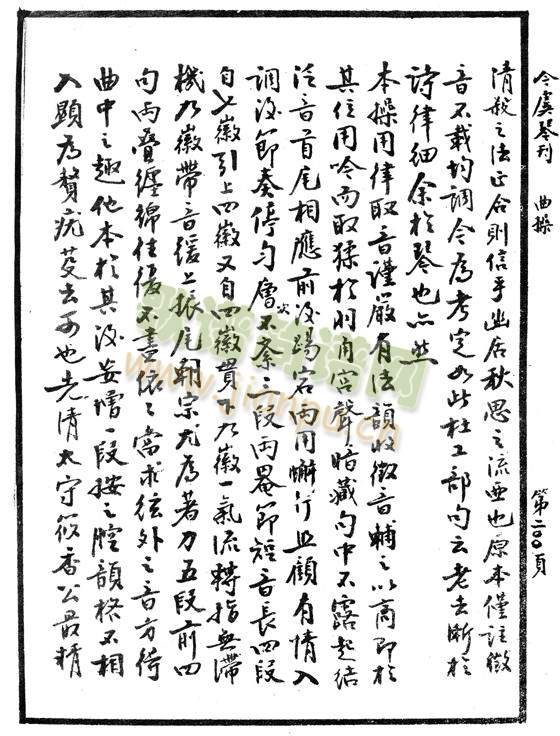 今虞琴刊　曲操
第二〇〇頁
清殺之法正合則信乎幽居秋思之流亞也原本僅註徵
音不載均調今為考定如此杜工部句云老去漸於
詩律細余於琴也亦然
本操用律取音謹嚴有法韻收徵音輔之以商即於
其位用吟而取猱於羽角宮聲暗藏句中不露起結
泛音首尾相應前後踢宕兩用蠏行照顧有情入
調後節奏停勻層次不紊三段兩罨節短音長四段
自七徽引上四徽又自四徽貫下九徽一氣流轉指無滯
機九徽帶音緩上振尾朝宗尤為著力五段前四
句両疊纏綿往復不盡依依當求弦外之音方得
曲中之趣他本於其後妄增一段按之腔韻格不相
入顯為贅疣芟去可也先清太守筱香公最精
www.jianpu.cn